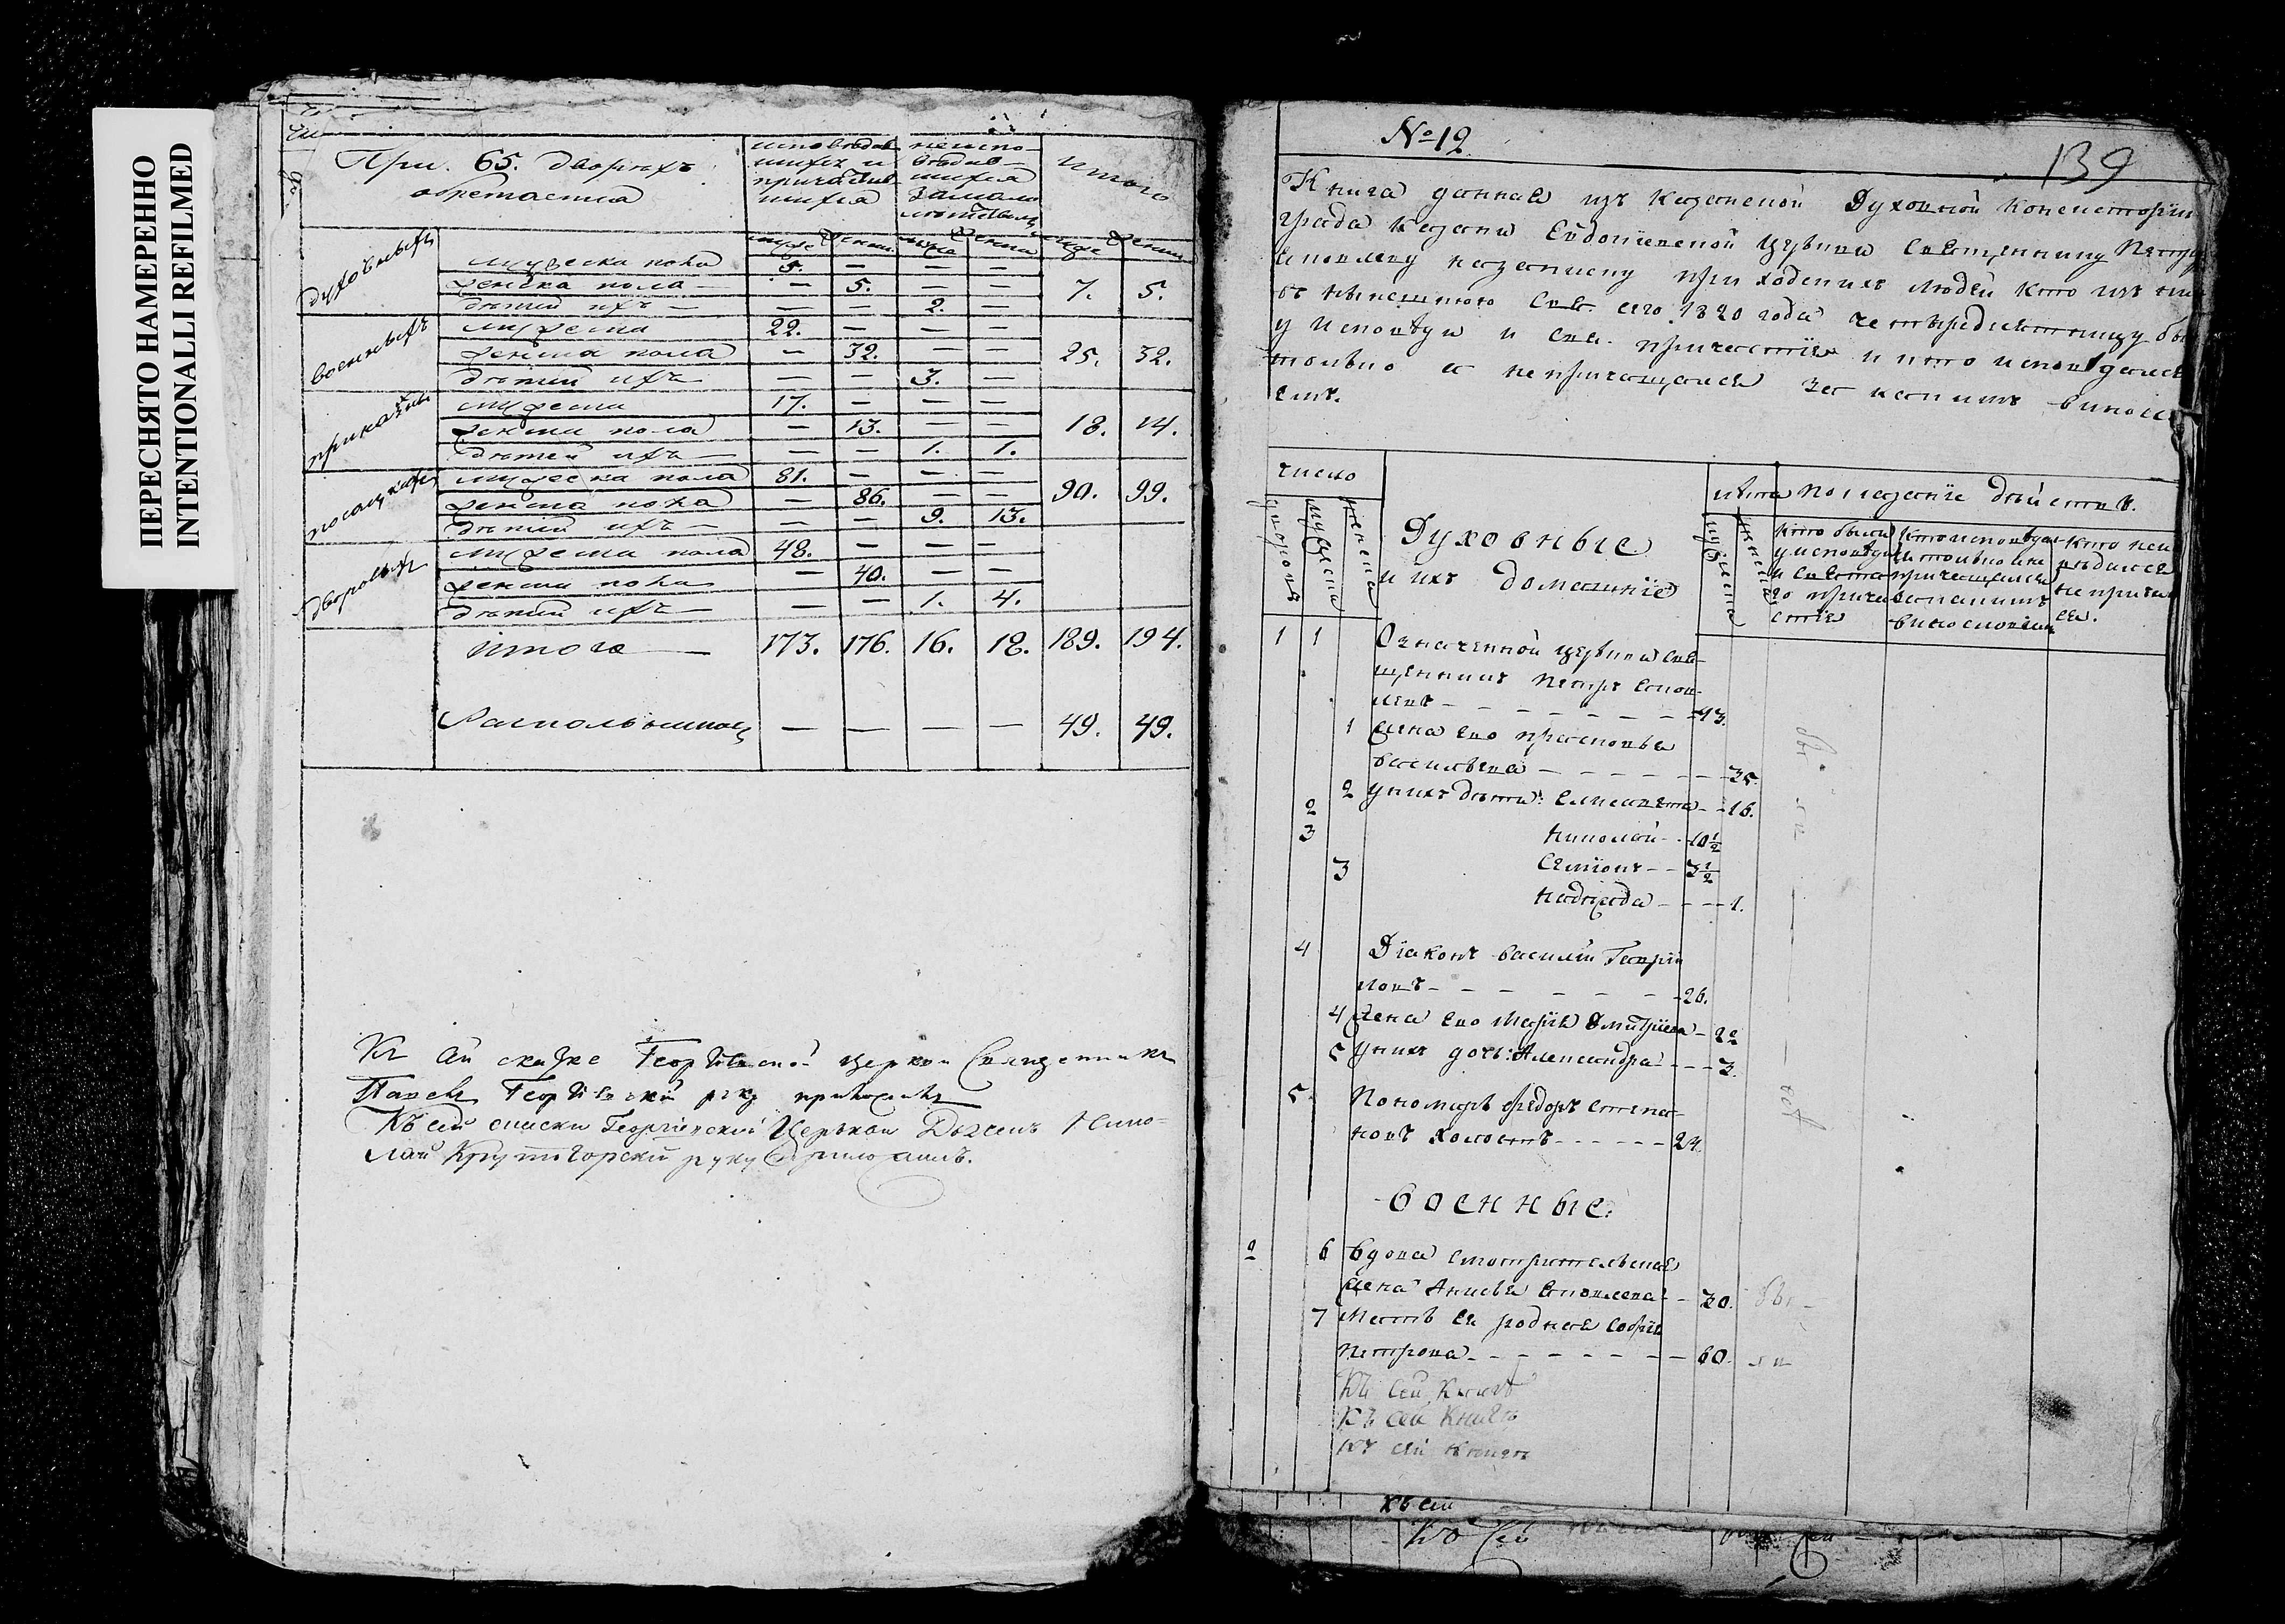 ПЕРЕСНЯТО НАМЕРЕННО
INTENTIONALLI REFILMED
При. 65. дворехъ
обретается
исповѣдав
шихся и
причастив
шихся
неиспо
вѣдав
шихся
замало
лѣтством
итого
муже женска муже женска муже женска
духовныхъ
мужеска пола 5. — — — 7. 5.
женска пола — 5. — —
дѣтей ихъ — — 2. —
военныхъ
мужеска 22. — — — 25. 32.
женска пола — 32. — —
дѣтей ихъ — — 3. —
приказны
мужеска 17. — — — 18. 14.
женска пола — 13. — —
дѣтей ихъ — — 1. 1.
посацкихъ
мужеска пола 81. — — — 90. 99.
женска пола — 86. — —
дѣтей ихъ — — 9. 13.
дворовыхъ
мужеска пола 48. — — —
женска пола — 40. — —
дѣтей ихъ — — 1. 4.
итого — 173. 176. 16. 18. 189. 194.
Раскольников — — — — 49. 49.
Къ сей сказке Георгіевской церкви Священникъ
Павелъ Георгіевскій руку приложилъ
Къ сей списки Георгіевской Церькви Дьяконъ Нико=
лай Крутогорскій руку приложилъ.
№ 12
139
Книга данная изъ Казанской Духовной Консисторіи
града Казани Евдокіевской церкви Священнику Петру
Яковлеву касательно приходскихъ людей кто изъ нихъ
въ нынешнюю Свя. сего 1820 года четыредесятницу бы
у Исповѣди и Свя. причастія и кто исповѣдался
только а непричащался за какимъ винос
емъ.
число
дворовъ
мужеска
женска
Духовные
и ихъ домашніе
лѣта
мужеска
женска
показаніе действъ.
кто были
у исповѣди
и Свята
го прича
стія
кто исповѣдал
ся только а не
причащался
за какимъ
винословіемъ
кто неис
повѣдался
не прича
ся.
1 1 Означенной церкви свя-
щенникъ Петръ Яков-
левъ — — — — 43.
1 жена его прасковья
васильевна — — — — 35.
2 у нихъ дѣти: Елисавета - - 16.
2 Николай - - 10½
3 Семіонъ - - 3½
3 Надежда - - - 1.
4 Діаконъ василій Гаври
ловъ — — — — 26.
4 жена его Марія Дмитріева - 22
5 у нихъ дочь: Александра - - - 3.
5 Пономарь Федоръ степа-
новъ холостъ - - - - - - 24.
военные.
2 6 вдова смотрительская
жена Анисья Яковлева - 30.
7 Мать ея родная Софія
Петрова - - - - - - - - 60.
Къ сей книге
Къ сей книгѣ
къ сей книгѣ
Къ сей
Ко сей